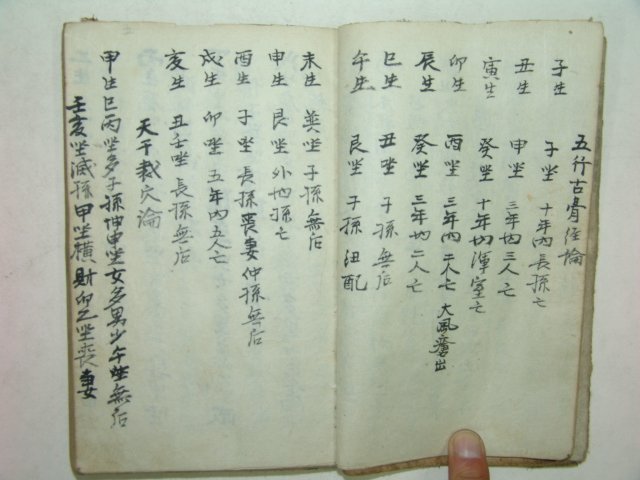 五行古骨经論
子生 子坐 十年內長孫亡
丑生 申坐 三年內三人亡
寅生 癸坐 十年內渾室亡
卯生 酉坐 三年內二人亡 大風瘡出
辰生 癸坐 三年內二人亡
巳生 丑坐 子孫無后
午生 艮坐 子孫 配
未生 巽坐 子孫無后
申生 艮坐 外地孫亡
酉生 子坐 長孫喪妻 仲孫無后
戌生 卯坐 五年內五人亡
亥生 丑壬坐 長孫無后
天干裁穴論
甲生巳丙坐多子孫坤申坐女多男少午坐無后
壬亥坐滅孫甲坐橫財卯乙坐喪妻